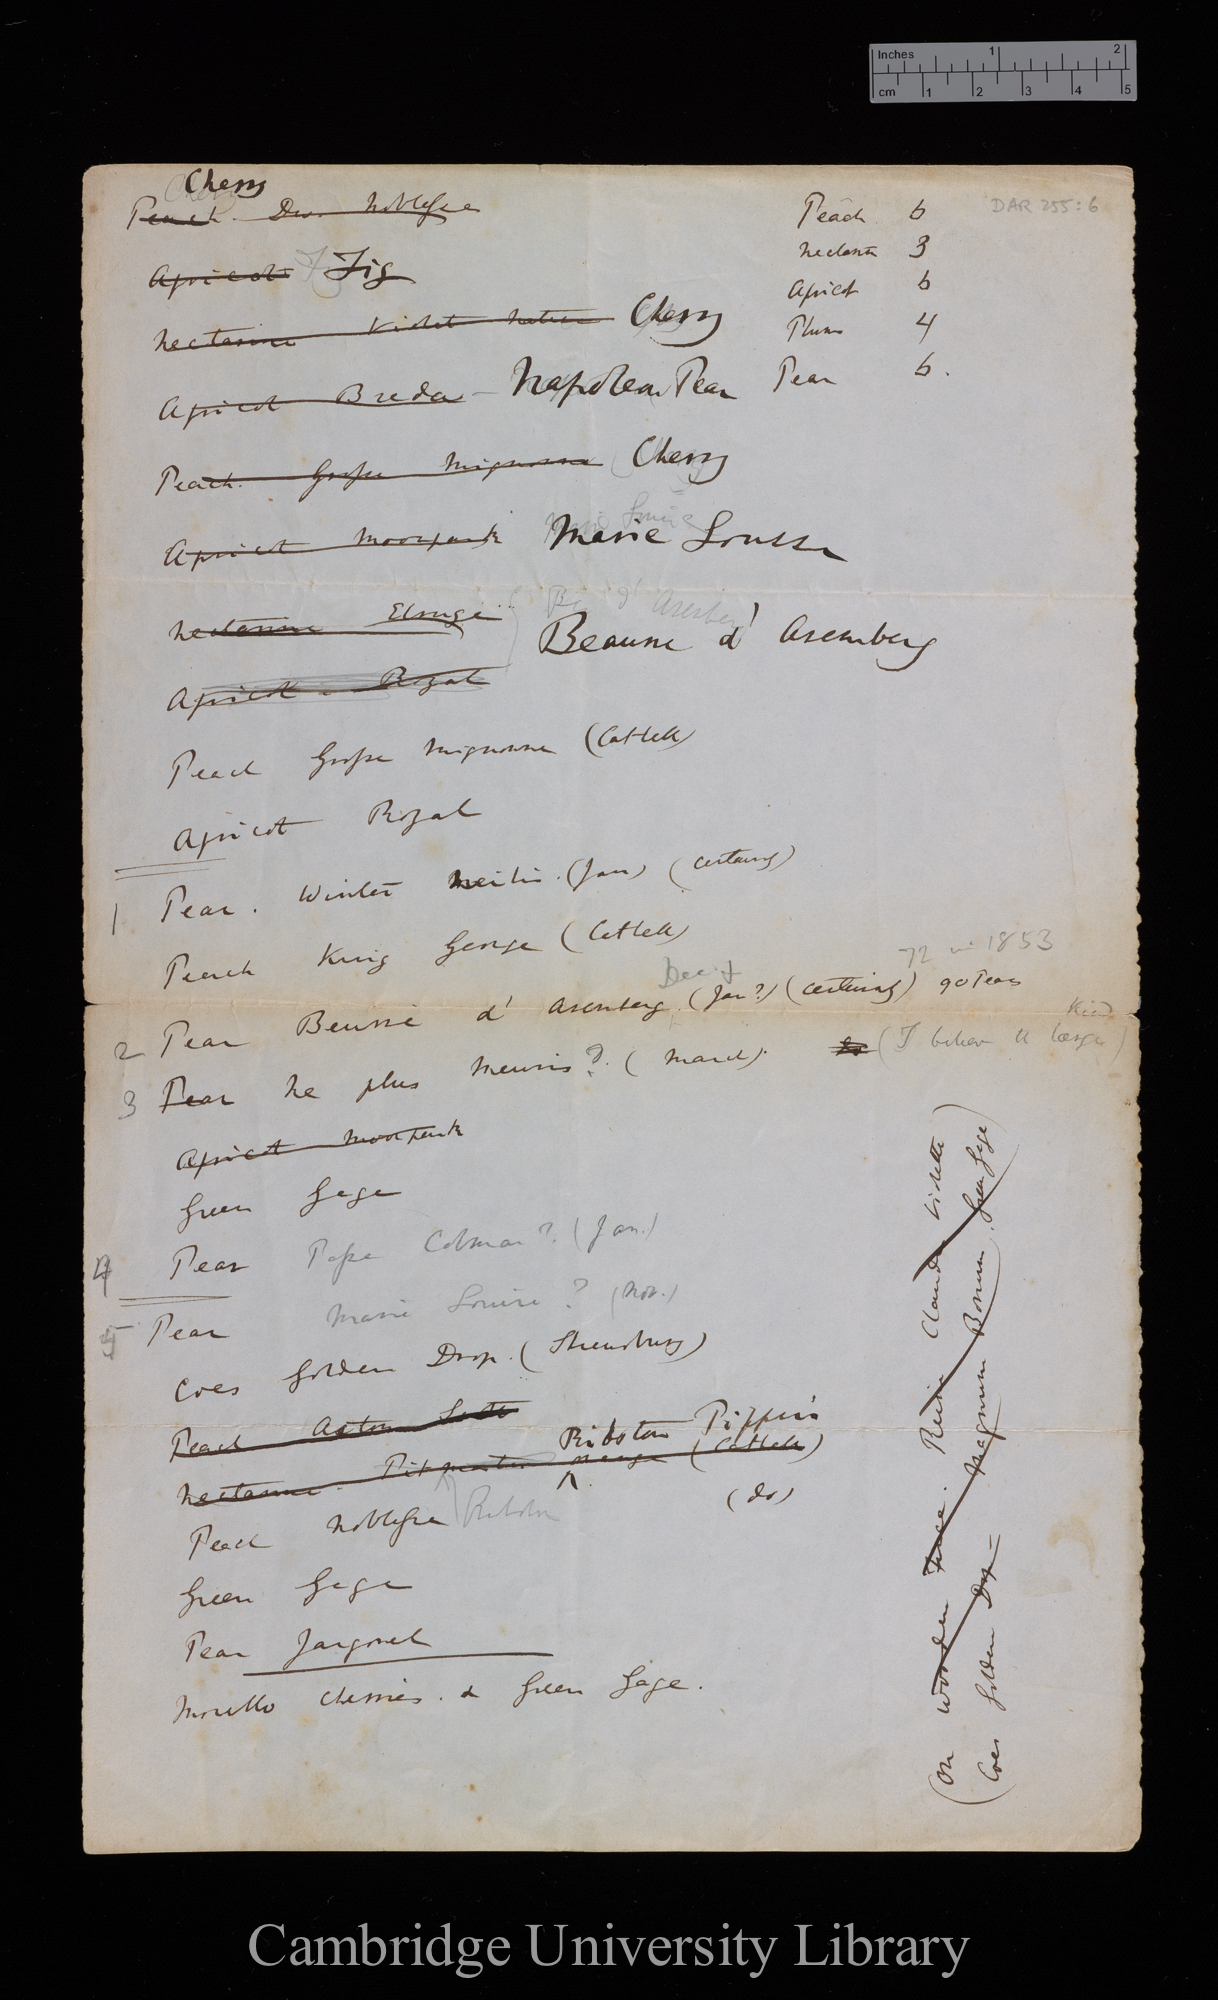 Inches 1 2
cm 1 2 3 4 5
DAR 255:6
Cherry
Peach Noblesse
Apricot Fig
Nectarine Violet Hative Cherry
Apricot Breda - Napoleon Pear
Peach. Grosse Mignonne Cherry
Apricot Moorpark Marie Louise
Nectarine Elruge
Beurre d' Aremberg
Apricot - Royal
Peach 6
Nectarin 3
Apricot 6
Plums 4
Pear 6.
Peach Grosse Mignonne (Cattell)
Apricot Royal
1 Pear. Winter Neilis. (Jan) (certainly)
Peach King George (Cattell)
72 in 1853
Dec. &
2 Pear Beurré d' Aremberg. (Jan?) (certainly) 90 Pears
Kind
3 Pear Ne plus Meuris? (March). (I believe the large)
Apricot Moorpark
Green Gage
4 Pear Passe Colmar? (Jan.)
5 Pear Marie Louise? (Nov.)
Coes Golden Drop. (Shrewsbury)
Peach
Ribston Pippin
Nectarine. Pitmaston Orange (Cattell)
Peach Noblesse Ribston (do)
Green Gage
Pear Jargonel
Morello Cherries. & Green Gage.
(On Wooden Fence. Reine Claude Violette)
(Coes Golden Drop - Magnum Bonum, Green Gage)
Cambridge University Library